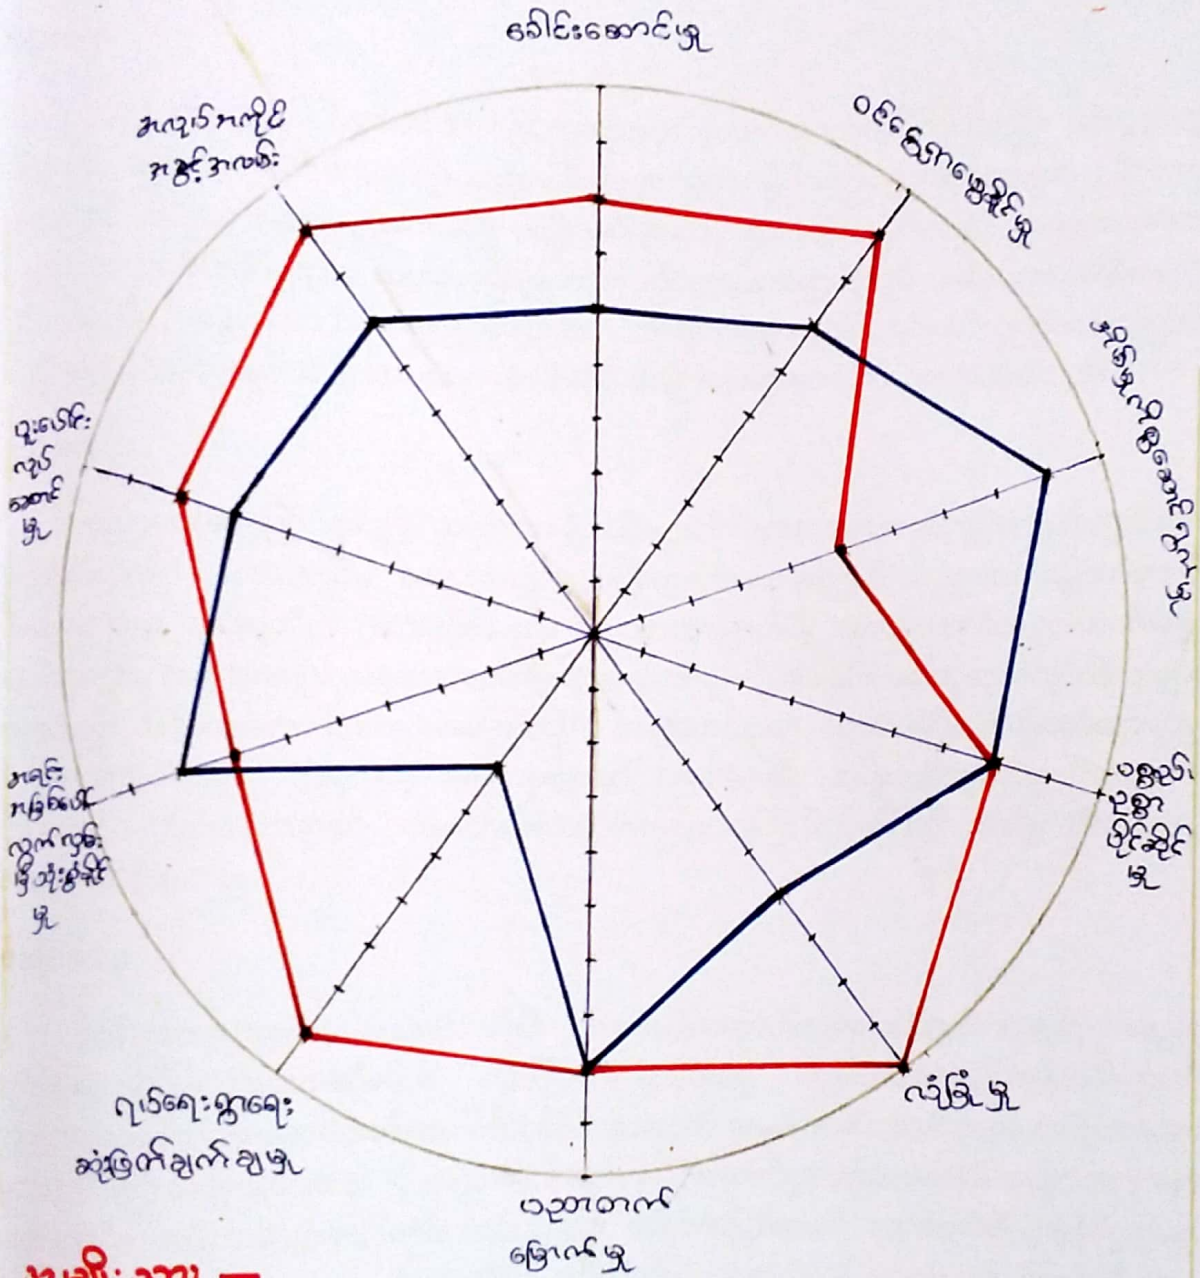 ခေါင်းဆောင်မှု
ဝင်ငွေရှာဖွေနိုင်မှု
အိမ်မှုကိစ္စဆောင်ရွက်မှု
ပစ္စည်း
ဥစ္စာ
ပိုင်ဆိုင်
မှု
လုံခြုံမှု
ပညာတတ်
မြောက်မှု
ရပ်ရေးရွာရေး
ဆုံးဖြတ်ချက်ချမှု
အရင်း
အမြစ်ပေါ်
လွှမ်းမိုး
မှု
ပူးပေါင်း
လုပ်
ဆောင်
မှု
အလုပ်အကိုင်
အခွင့်အလမ်း